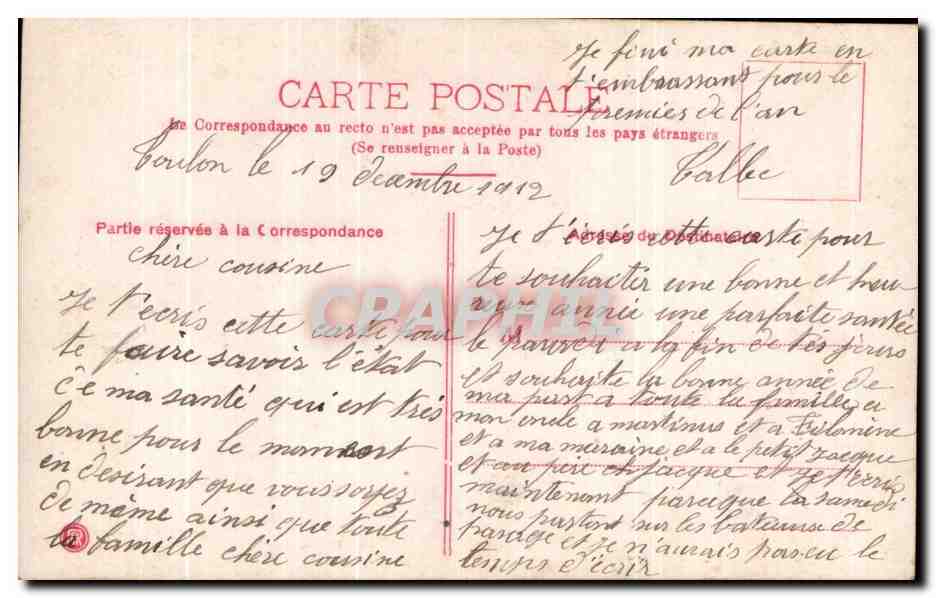 CARTE POSTALE
La Correspondance au recto n'est pas acceptée par tous les pays étrangers
(Se renseigner à la Poste)
Toulon le 19 decembre 1912
Partie réservée à la Correspondance
Adresse du Destinataire
chère cousine
Je t'ecris cette carte pour
te faire savoir l'état
de ma santé qui est très
bonne pour le moment
en désirant que vous soyez
de même ainsi que toute
la famille chère cousine
Je t'écris cette carte pour
te souhaiter une bonne et heu
reuze année une parfaite santée
le a la fin de tés jours
et souhaite la bonne année de
ma part a toute la famille a
mon oncle a martinus et a Filomène
et a ma meraine et a le petit Jacque
et au père Jacque et je t'ecris
maintenant parceque la samedi
nous partons sur les bateaux de
et je n'aurais pas eu le
temps d'écrir
Je fini ma carte en
t'embrassant pour le
premies de l'an
CPAPHIL